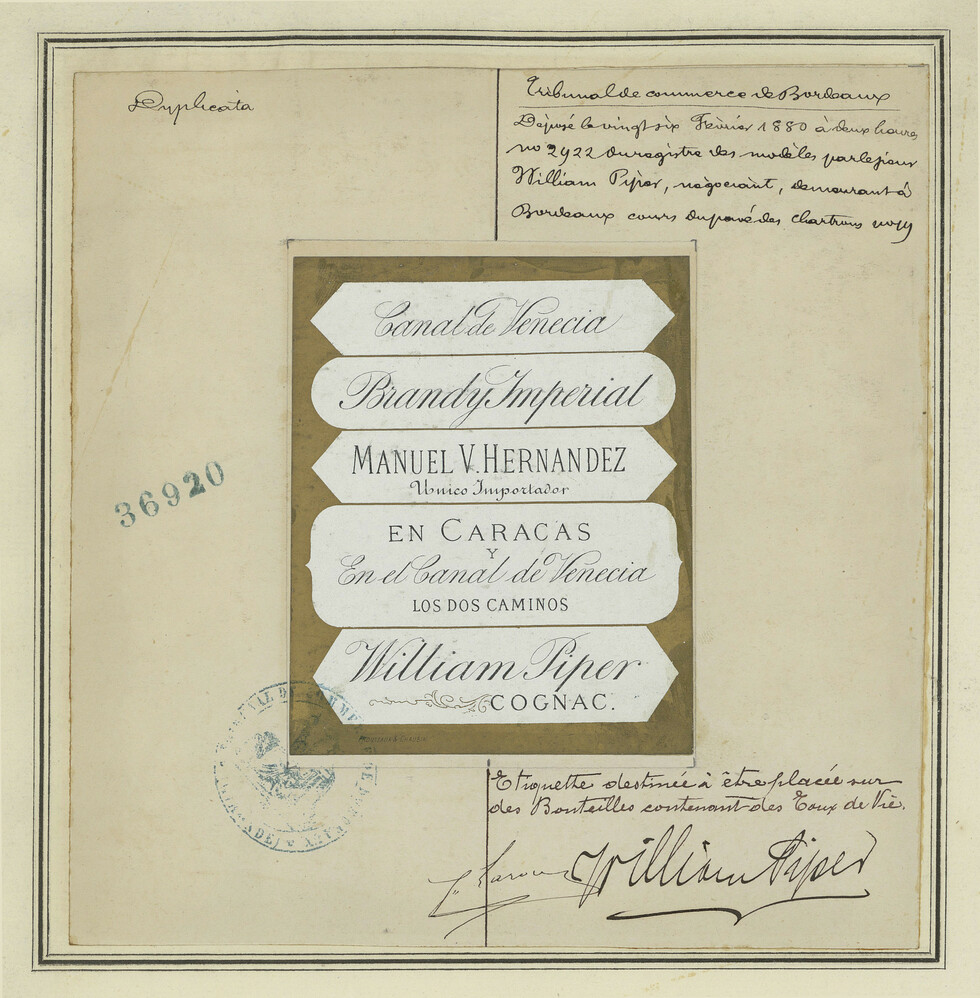 Duplicata
Tribunal de commerce de Bordeaux
Déposé le vingt six Février 1880 à deux heures
no 2922 du registre des modèles par le sieur
William Piper, négociant, demeurant à
Bordeaux cours du pavé des Chartrons no 19
Canal de Venecia
Brandy Imperial
MANUEL V. HERNANDEZ
Unico Importador
EN CARACAS
Y
En el Canal de Venecia
LOS DOS CAMINOS
William Piper
COGNAC.
36920
TRIBUNAL DE COMMERCE DE BORDEAUX
(GIRONDE)
Etiquette destinée à être placée sur
des Bouteilles contenant des Eaux de Vie.
William Piper